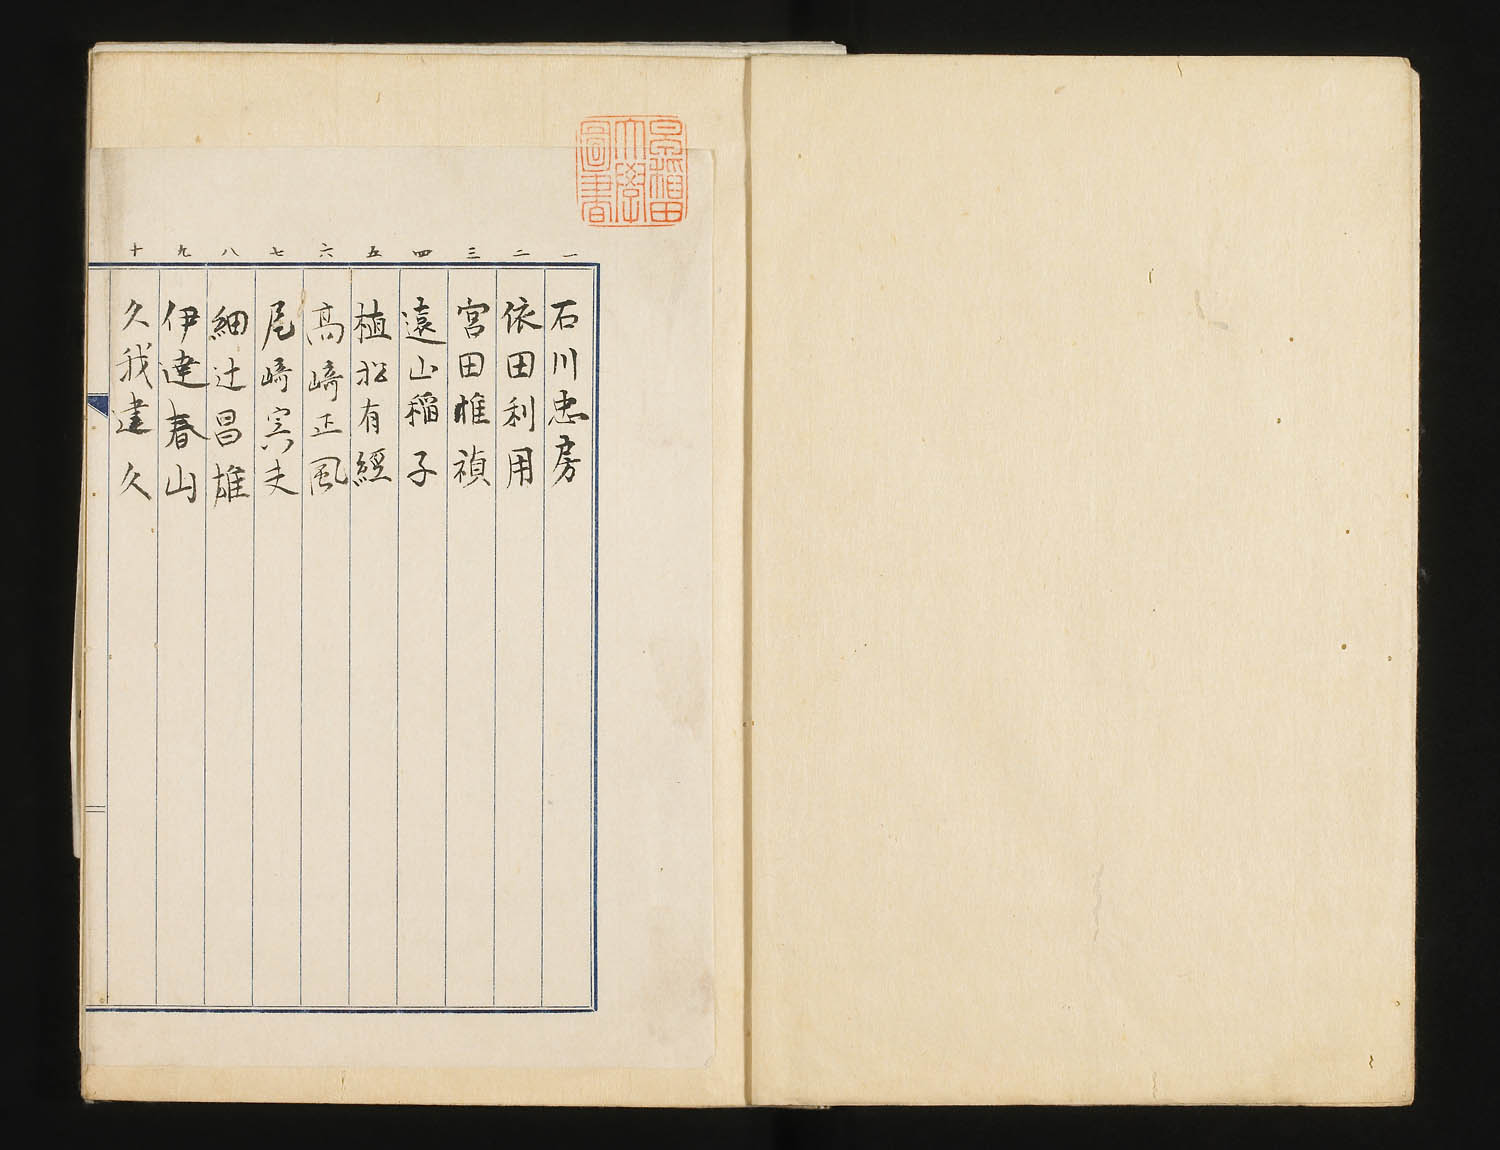 早稲田
大學
圖書
一
石川忠房
二
依田利用
三
宮田維禎
四
遠山稲子
五
植松有經
六
高﨑正風
七
尾﨑宍夫
八
細辻昌雄
九
伊達春山
十
久我建久